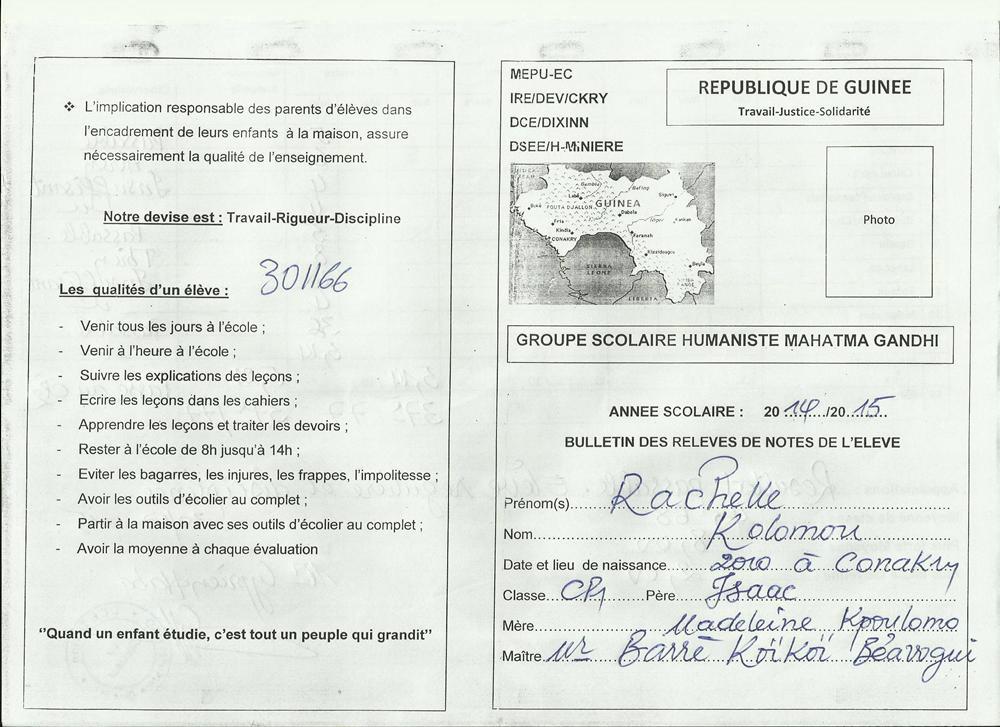 ❖ L'implication responsable des parents d'élèves dans
l'encadrement de leurs enfants à la maison, assure
nécessairement la qualité de l'enseignement.
Notre devise est : Travail-Rigueur-Discipline
301166
Les qualités d'un élève :
- Venir tous les jours à l'école ;
- Venir à l'heure à l'école ;
- Suivre les explications des leçons ;
- Ecrire les leçons dans les cahiers ;
- Apprendre les leçons et traiter les devoirs ;
- Rester à l'école de 8h jusqu'à 14h ;
- Eviter les bagarres, les injures, les frappes, l'impolitesse ;
- Avoir les outils d'écolier au complet ;
- Partir à la maison avec ses outils d'écolier au complet ;
- Avoir la moyenne à chaque évaluation
"Quand un enfant étudie, c'est tout un peuple qui grandit"
MEPU-EC
IRE/DEV/CKRY
DCE/DIXINN
DSEE/H-MINIERE
REPUBLIQUE DE GUINEE
Travail-Justice-Solidarité
Photo
GUINEA
FOUTA DJALLON
Labé
Dabola
Kindia
CONAKRY
Faranah
Kissidougou
Kankan
Siguiri
Beyla
SIERRA
LEONE
LIBERIA
GROUPE SCOLAIRE HUMANISTE MAHATMA GANDHI
ANNEE SCOLAIRE : 2014/2015
BULLETIN DES RELEVES DE NOTES DE L'ELEVE
Prénom(s) Rachelle
Nom Kolomou
Date et lieu de naissance 2010 à Conakry
Classe CP1 Père Isaac
Mère Madeleine Kpoulomo
Maître Mr Barré Koïkoï Béavogui